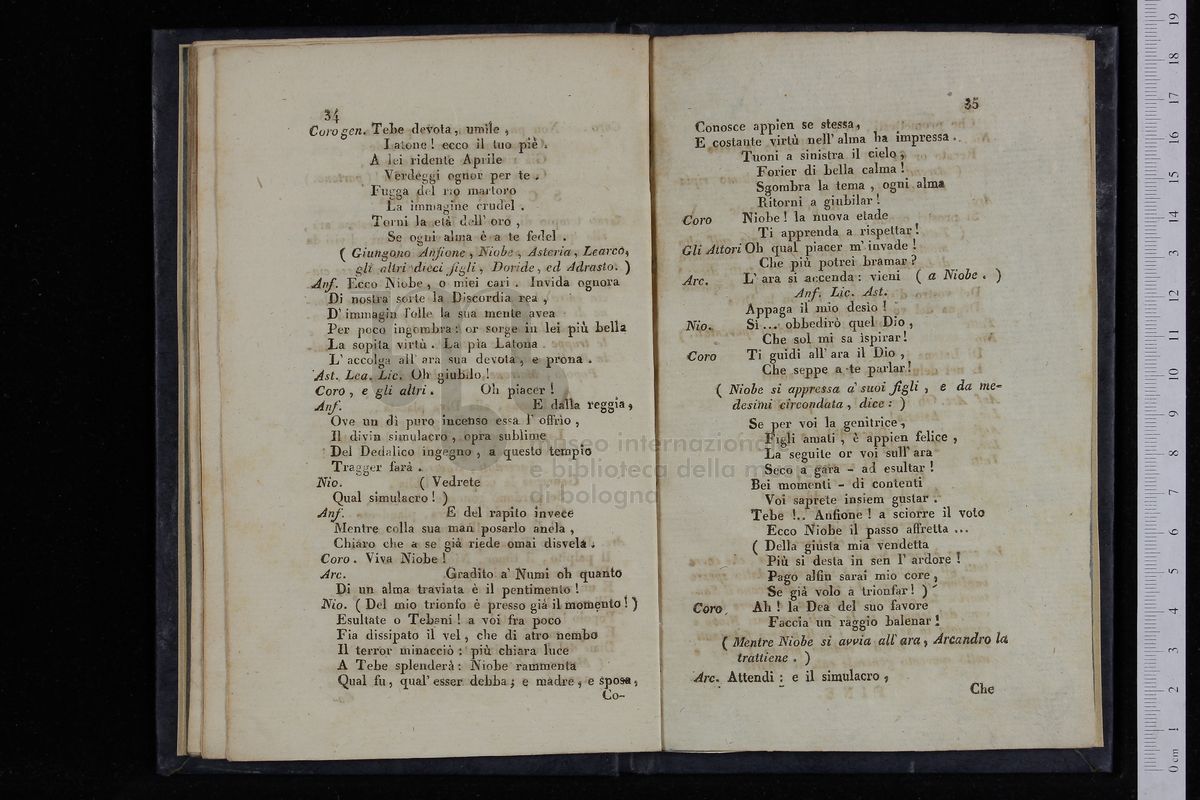 34
Coro gen. Tebe devota, umile,
Latone! ecco il tuo piè.
A lei ridente Aprile
Verdeggi ognor per te.
Fugga del rio martoro
La immagine crudel.
Torni la età dell' oro,
Se ogni alma è a te fedel.
( Giungono Anfione, Niobe, Asteria, Learco,
gli altri dieci figli, Doride, ed Adrasto. )
Anf. Ecco Niobe, o miei cari. Invida ognora
Di nostra sorte la Discordia rea,
D' immagin folle la sua mente avea
Per poco ingombra: or sorge in lei più bella
La sopita virtù. La pia Latona
L' accolga all' ara sua devota, e prona.
Ast. Lea. Lic. Oh giubilo!
Coro, e gli altri. Oh piacer!
Anf. E dalla reggia,
Ove un dì puro incenso essa l' offrìo,
Il divin simulacro, opra sublime
Del Dedalico ingegno, a questo tempio
Tragger farà.
Nio. ( Vedrete
Qual simulacro! )
Anf. E del rapito invece
Mentre colla sua man posarlo anela,
Chiaro che a se già riede omai disvela.
Coro. Viva Niobe!
Arc. Gradito a' Numi oh quanto
Di un alma traviata è il pentimento!
Nio. ( Del mio trionfo è presso già il momento! )
Esultate o Tebani! a voi fra poco
Fia dissipato il vel, che di atro nembo
Il terror minacciò: più chiara luce
A Tebe splenderà: Niobe rammenta
Qual fu, qual' esser debba; e madre, e sposa,
Co-
35
Conosce appien se stessa,
E costante virtù nell' alma ha impressa.
Tuoni a sinistra il cielo,
Forier di bella calma!
Sgombra la tema, ogni alma
Ritorni a giubilar!
Coro Niobe! la nuova etade
Ti apprenda a rispettar!
Gli Attori Oh qual piacer m' invade!
Che più potrei bramar?
Arc. L' ara si accenda: vieni ( a Niobe. )
Anf. Lic. Ast.
Appaga il mio desio!
Nio. Sì... obbedirò quel Dio,
Che sol mi sa ispirar!
Coro Ti guidi all' ara il Dio,
Che seppe a te parlar!
( Niobe si appressa a' suoi figli, e da me-
desimi circondata, dice: )
Se per voi la genitrice,
Figli amati, è appien felice,
La seguite or voi sull' ara
Seco a gara - ad esultar!
Bei momenti - di contenti
Voi saprete insiem gustar.
Tebe!.. Anfione! a sciorre il voto
Ecco Niobe il passo affretta ...
( Della giusta mia vendetta
Più si desta in sen l' ardore!
Pago alfin sarai mio core,
Se già volo a trionfar! )
Coro Ah! la Dea del suo favore
Faccia un raggio balenar!
( Mentre Niobe si avvia all' ara, Arcandro la
trattiene. )
Arc. Attendi: e il simulacro,
Che
museo internazionale
e biblioteca della m
di bologna
0 cm 1 2 3 4 5 6 7 8 9 10 11 12 13 14 15 16 17 18 19